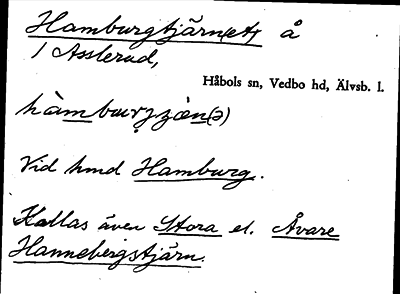 Hamburgtjärn(et) å
/ Asslerud,
Håbols sn, Vedbo hd, Älvsb. l.
Vid hmd Hamburg.
Kallas även Stora el. Åvare
Hannebergstjärn.